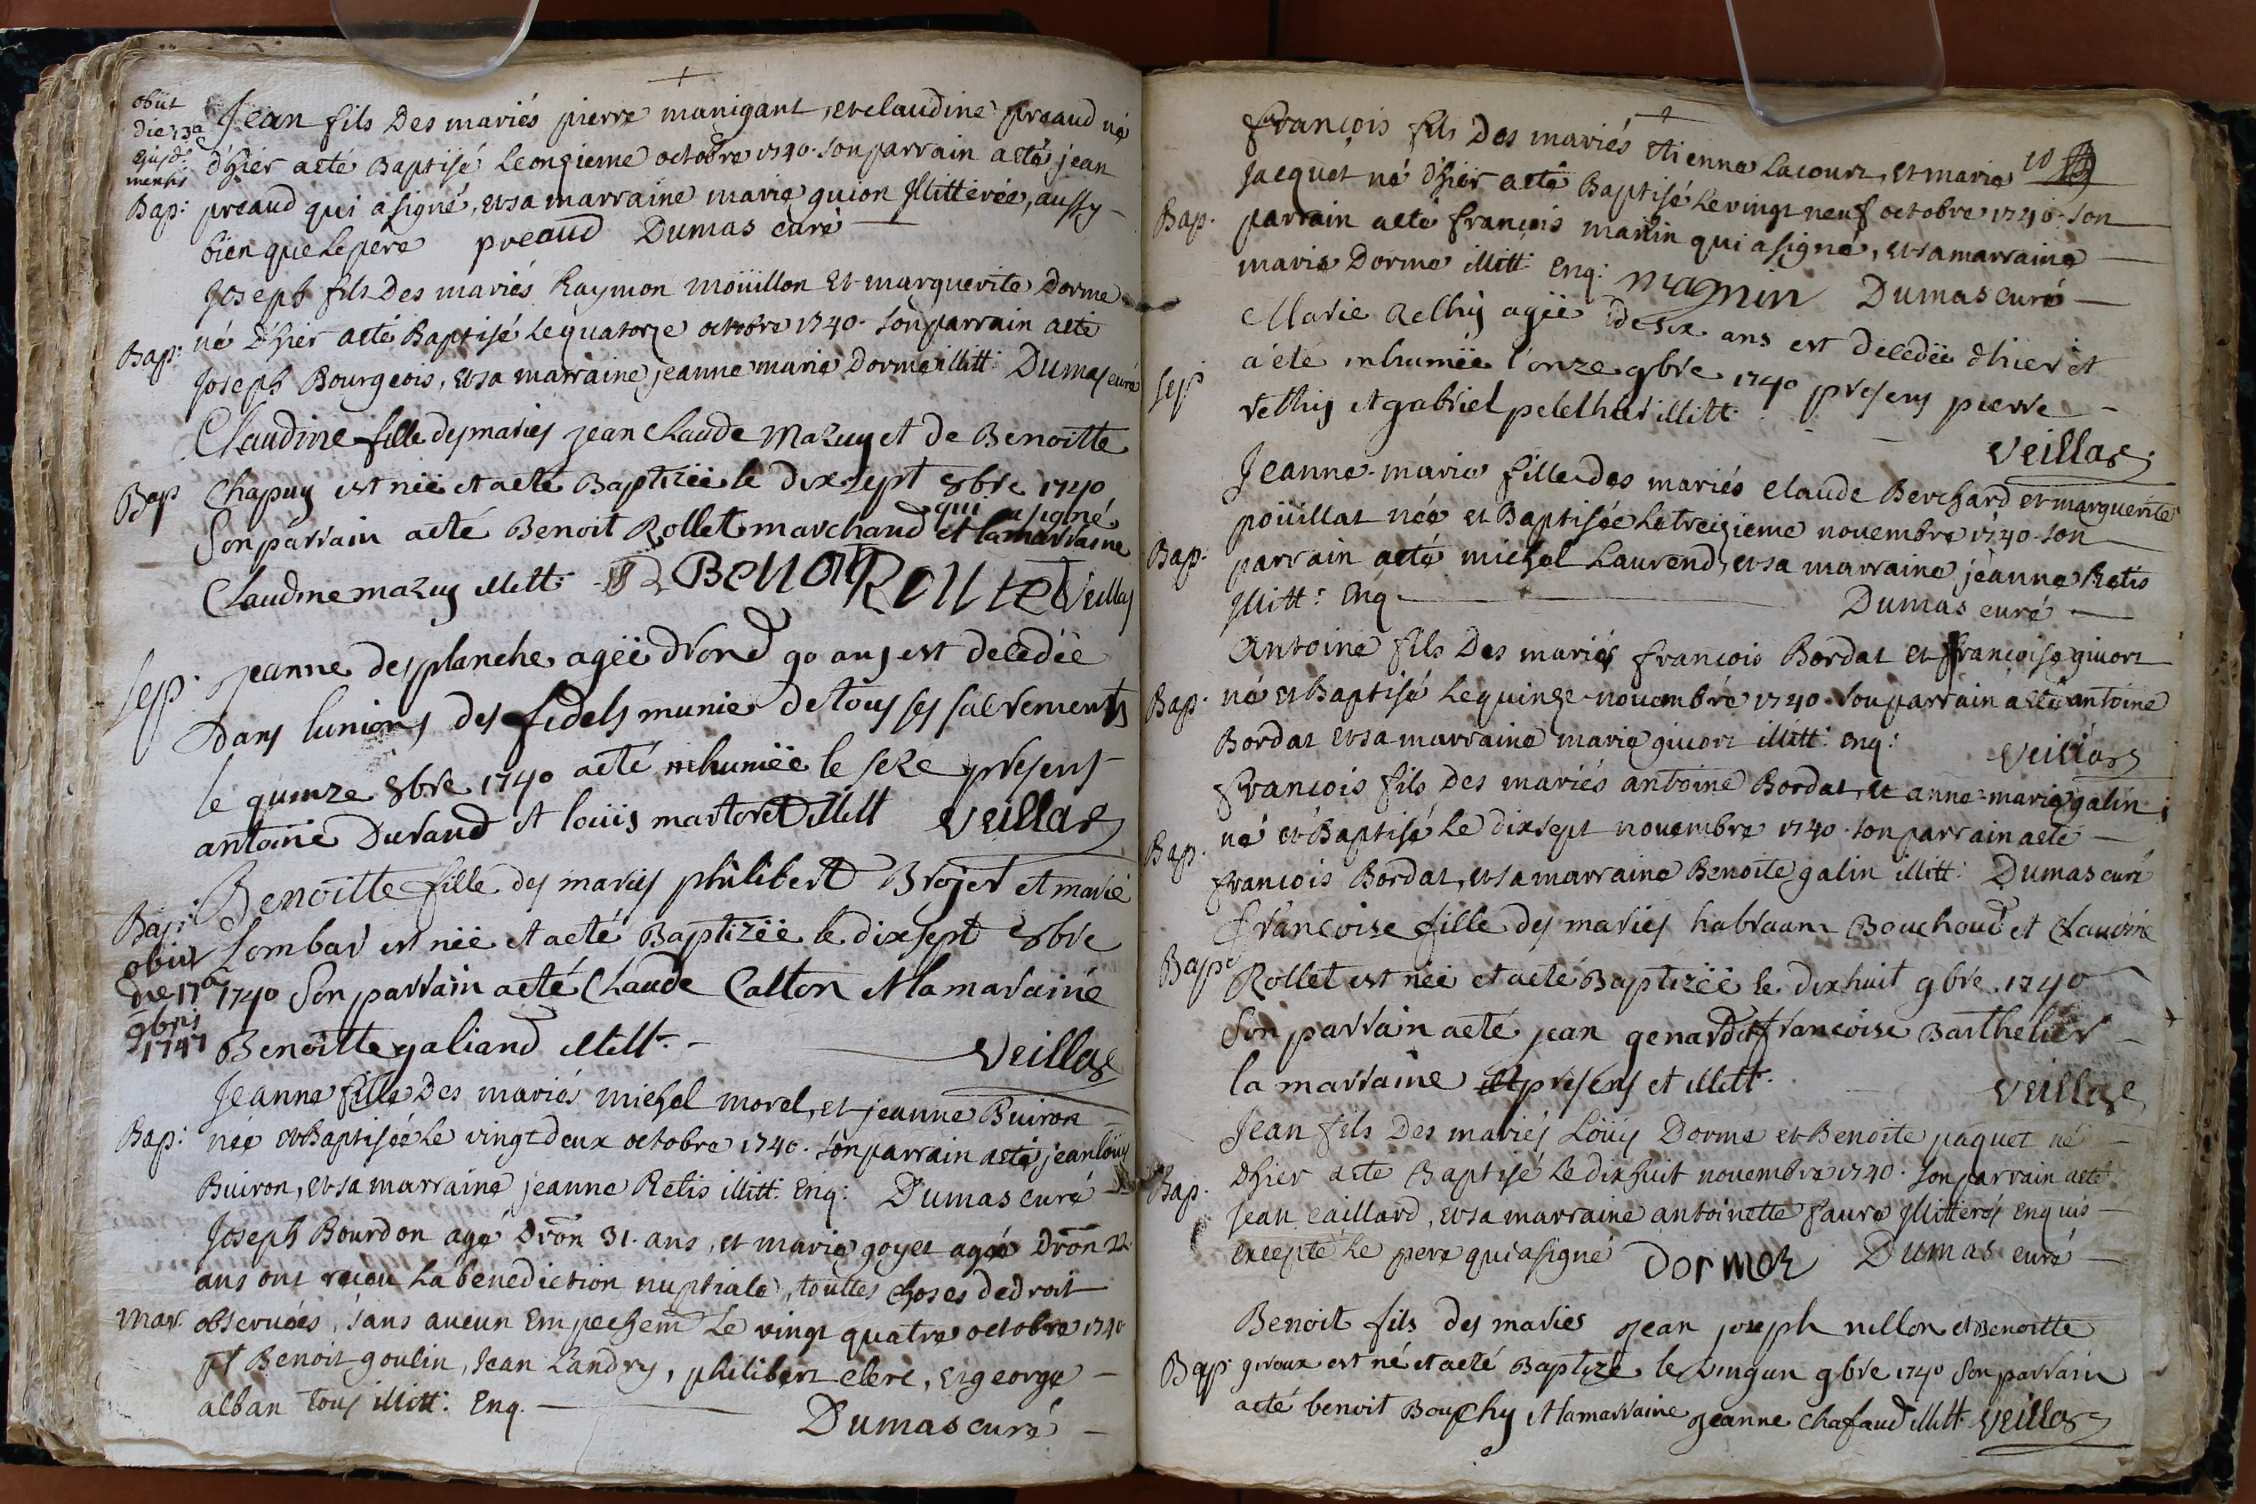 obiit
die 13a
ejusd.
mensis
Bap:
Jean fils Des mariés pierre manigant, et claudine preaud né
d'hier aeté Baptisé Le onzieme octobre 1740. son parrain aeté jean
preaud qui a signé, et sa marraine marie guion Illitterée, aussy
bien que Le pere preaud Dumas curé
Joseph fils Des mariés Raymon moüillon Et marguerite Dorme
Bap:
né d'hier aeté Baptisé Le quatorze octobre 1740. son parrain aeté
Joseph Bourgeois, et sa marraine jeanne marie Dorme illitt: Dumas curé
Claudine fille des mariés jean Claude Mazuy et de Benoitte
Bap
Chapuy est néë et aeté Baptizéë le dix sept 8bre 1740
qui a signé
Son parrain aeté Benoit Rollet marchand et la marraine
Claudine mazuy illitt: Benoit Rollet Veillas
Sep.
jeanne desplanche agéë d'rond 90 ans est decedéë
Dans lunions des fidels munie de tous ses sacrements
le quinze 8bre 1740 aeté inhuméë le seze presens
antoine Durand et loüis martoret illitt Veillas
Benoitte fille des mariés philibert Brojet et marie
Bap:
Lombar est néë et aeté Baptizéë le dixsept 8bre
obiit
die 17a
9bris
1747
1740 Son parrain aeté Claude Catton et la maraine
Benoitte galiand illitt. Veillas
Jeanne fille Des mariés michel morel, et jeanne Buiron
Bap:
née et Baptisée Le vingt deux octobre 1740. son parrain aeté jean loüis
Buiron, et sa marraine jeanne Retis illitt. Enq: Dumas curé
Joseph Bourdon agé D'ron 31. ans, et marie goyet agée D'ron 22.
ans ont reçeu La benediction nuptiale, touttes choses de droit
mar.
observées, sans aucun Empechem Le vingt quatre octobre 1740
pt Benoit goulin, Jean Landry, philibert clerc, Et george
alban tous illitt: Enq. Dumas curé
10
françois fils Des mariés Etienne Lacour, et marie
Jacquet né d'hier aeté Baptisé Le vingt neuf octobre 1740. son
Bap.
parrain aeté françois manin qui a signé, et sa marraine
marie Dorme illitt: Enq: magnin Dumas curé
Marie rethy agéë de six ans est decedéë d'hier et
Sep.
a été inhuméë l'onze 9bre 1740 presens pierre
rethy et gabriel peletier illitt. Veillas
Jeanne-marie fille Des mariés claude Berchard et marguerite
poüillat née et Baptisée Le treizieme novembre 1740. son
Bap:
parrain aeté michel Laurend, et sa marraine jeanne Retis
Illitt: Enq. Dumas curé
Antoine fils Des mariés françois Bordat et françoise givort
Bap.
né et Baptisé Le quinze novembre 1740. son parrain aeté antoine
Bordat et sa marraine marie givort illitt: enq: Veillas
françois fils Des mariés antoine Bordat, et anne-marie galin
Bap.
né et Baptisé Le dixsept novembre 1740. son parrain aeté
françois Bordat, et sa marraine Benoite galin illitt: Dumas curé
françoise fille des mariés habraam Bouchoud et Claudine
Bap.
Rollet est néë et aeté Baptizéë le dixhuit 9bre 1740
Son parrain aeté jean genard et françoise Barthelier
la marraine presens et illitt. Veillas
Jean fils Des mariés Loüis Dorme et Benoite paquet né
Bap.
d'hier aeté Baptisé Le dixhuit novembre 1740. son parrain aeté
Jean caillard, et sa marraine antoinette faure Illitterés Enquis
excepté Le pere qui a signé Dormez Dumas curé
Benoit fils des mariés jean joseph nillon et Benoitte
Bap:
giroux est né et aeté Baptizé le vingun 9bre 1740 Son parrain
aeté benoit Bouchy et la marraine jeanne Chafaud illitt. Veillas